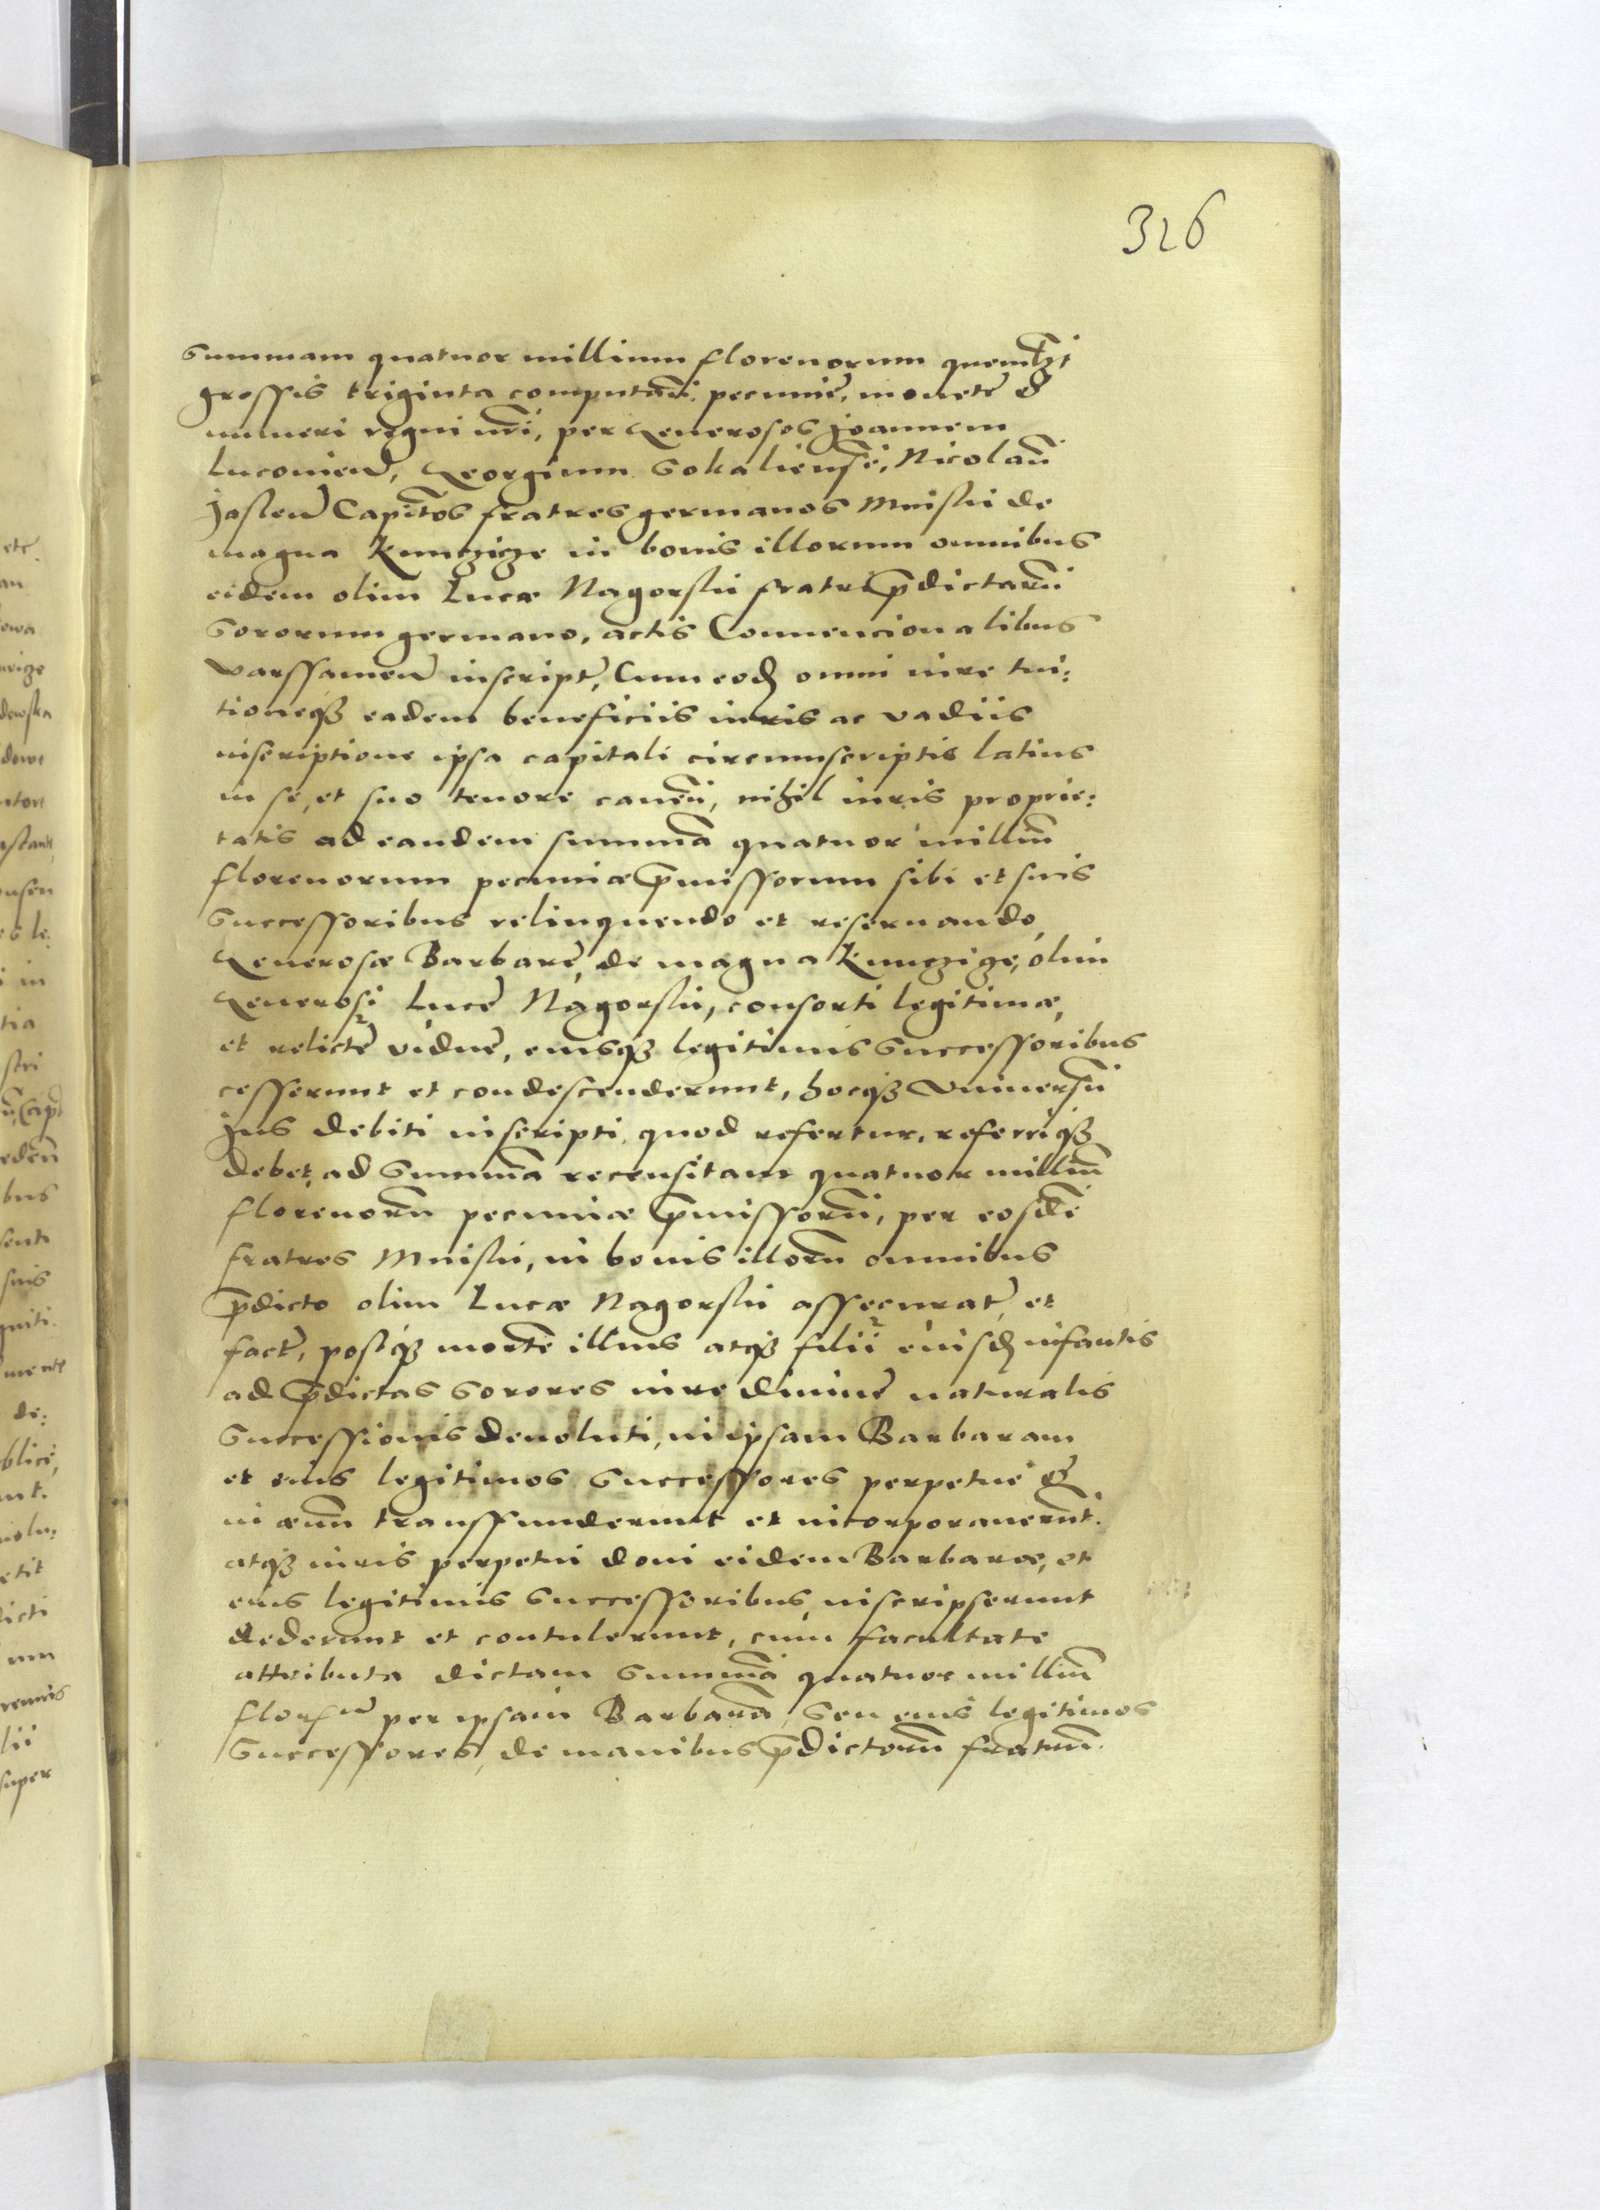 326
Summam quatuor millium florenorum quemlibet
grossis triginta computan̄. pecuniȩ, monetȩ &
numeri regni nr̄i, per Generosos Joannem
Luconien̄, Georgium Sokaliensē, Nicolaū
Joslen̄ Capitn̄os fratres germanos Mnisskii de
magna Kunczicze in bonis illorum omnibus
eidem olim Lucæ Nagorskii fratri p̄dictarū
Sororum germano, actis Conuencionalibus
Varssauien̄ inscriptȩ, Cum eod̄ omni iure tui:
tioneq₃ eadem beneficiis iuris ac vadiis
inscriptione ipsa capitali circumscriptis latius
in se, et suo tenore canen̄, nihil iuris proprie:
tatis ad eandem summā quatuor milliū
florenorum pecuniæ p̄missorum sibi et suis
Successoribus relinquendo et reseruando,
Generosæ Barbarȩ, de magna Kunczicze, olim
Generosi Lucȩ Nagorskii, consorti legitimæ,
et relictȩ viduȩ, eiusq₃ legitimis Successoribus
cesserunt et condescenderunt, hocq₃ Vniuersū
Jus debiti inscripti quod refertur, referriq₃
debet, ad Summā recensitam quatuor milliū
florenorū pecuniæ p̄missorū, per eosdē
fratres Mnisskii, in bonis illorū omnibus
p̄dicto olim Lucæ Nagorskii assecuratȩ, et
factȩ, postq₃ mortē illius atq₃ filii eiusd̄ infantis
ad p̄dictas Sorores iure diuinȩ naturalis
Successionis deuoluti, in ipsam Barbaram
et eius legitimos Successores perpetuȩ &
in æuū transfunderunt et incorporauerūt.
atq₃ iuris perpetui doni eidem Barbaræ, et
eius legitimis Successoribus inscripserunt
dederunt et contulerunt, cum facultate
attributa dictam Summā quatuor milliū
flor. per ipsam Barbarā, Seu eius legitimos
Successores, de manibus p̄dictorū fratrū.